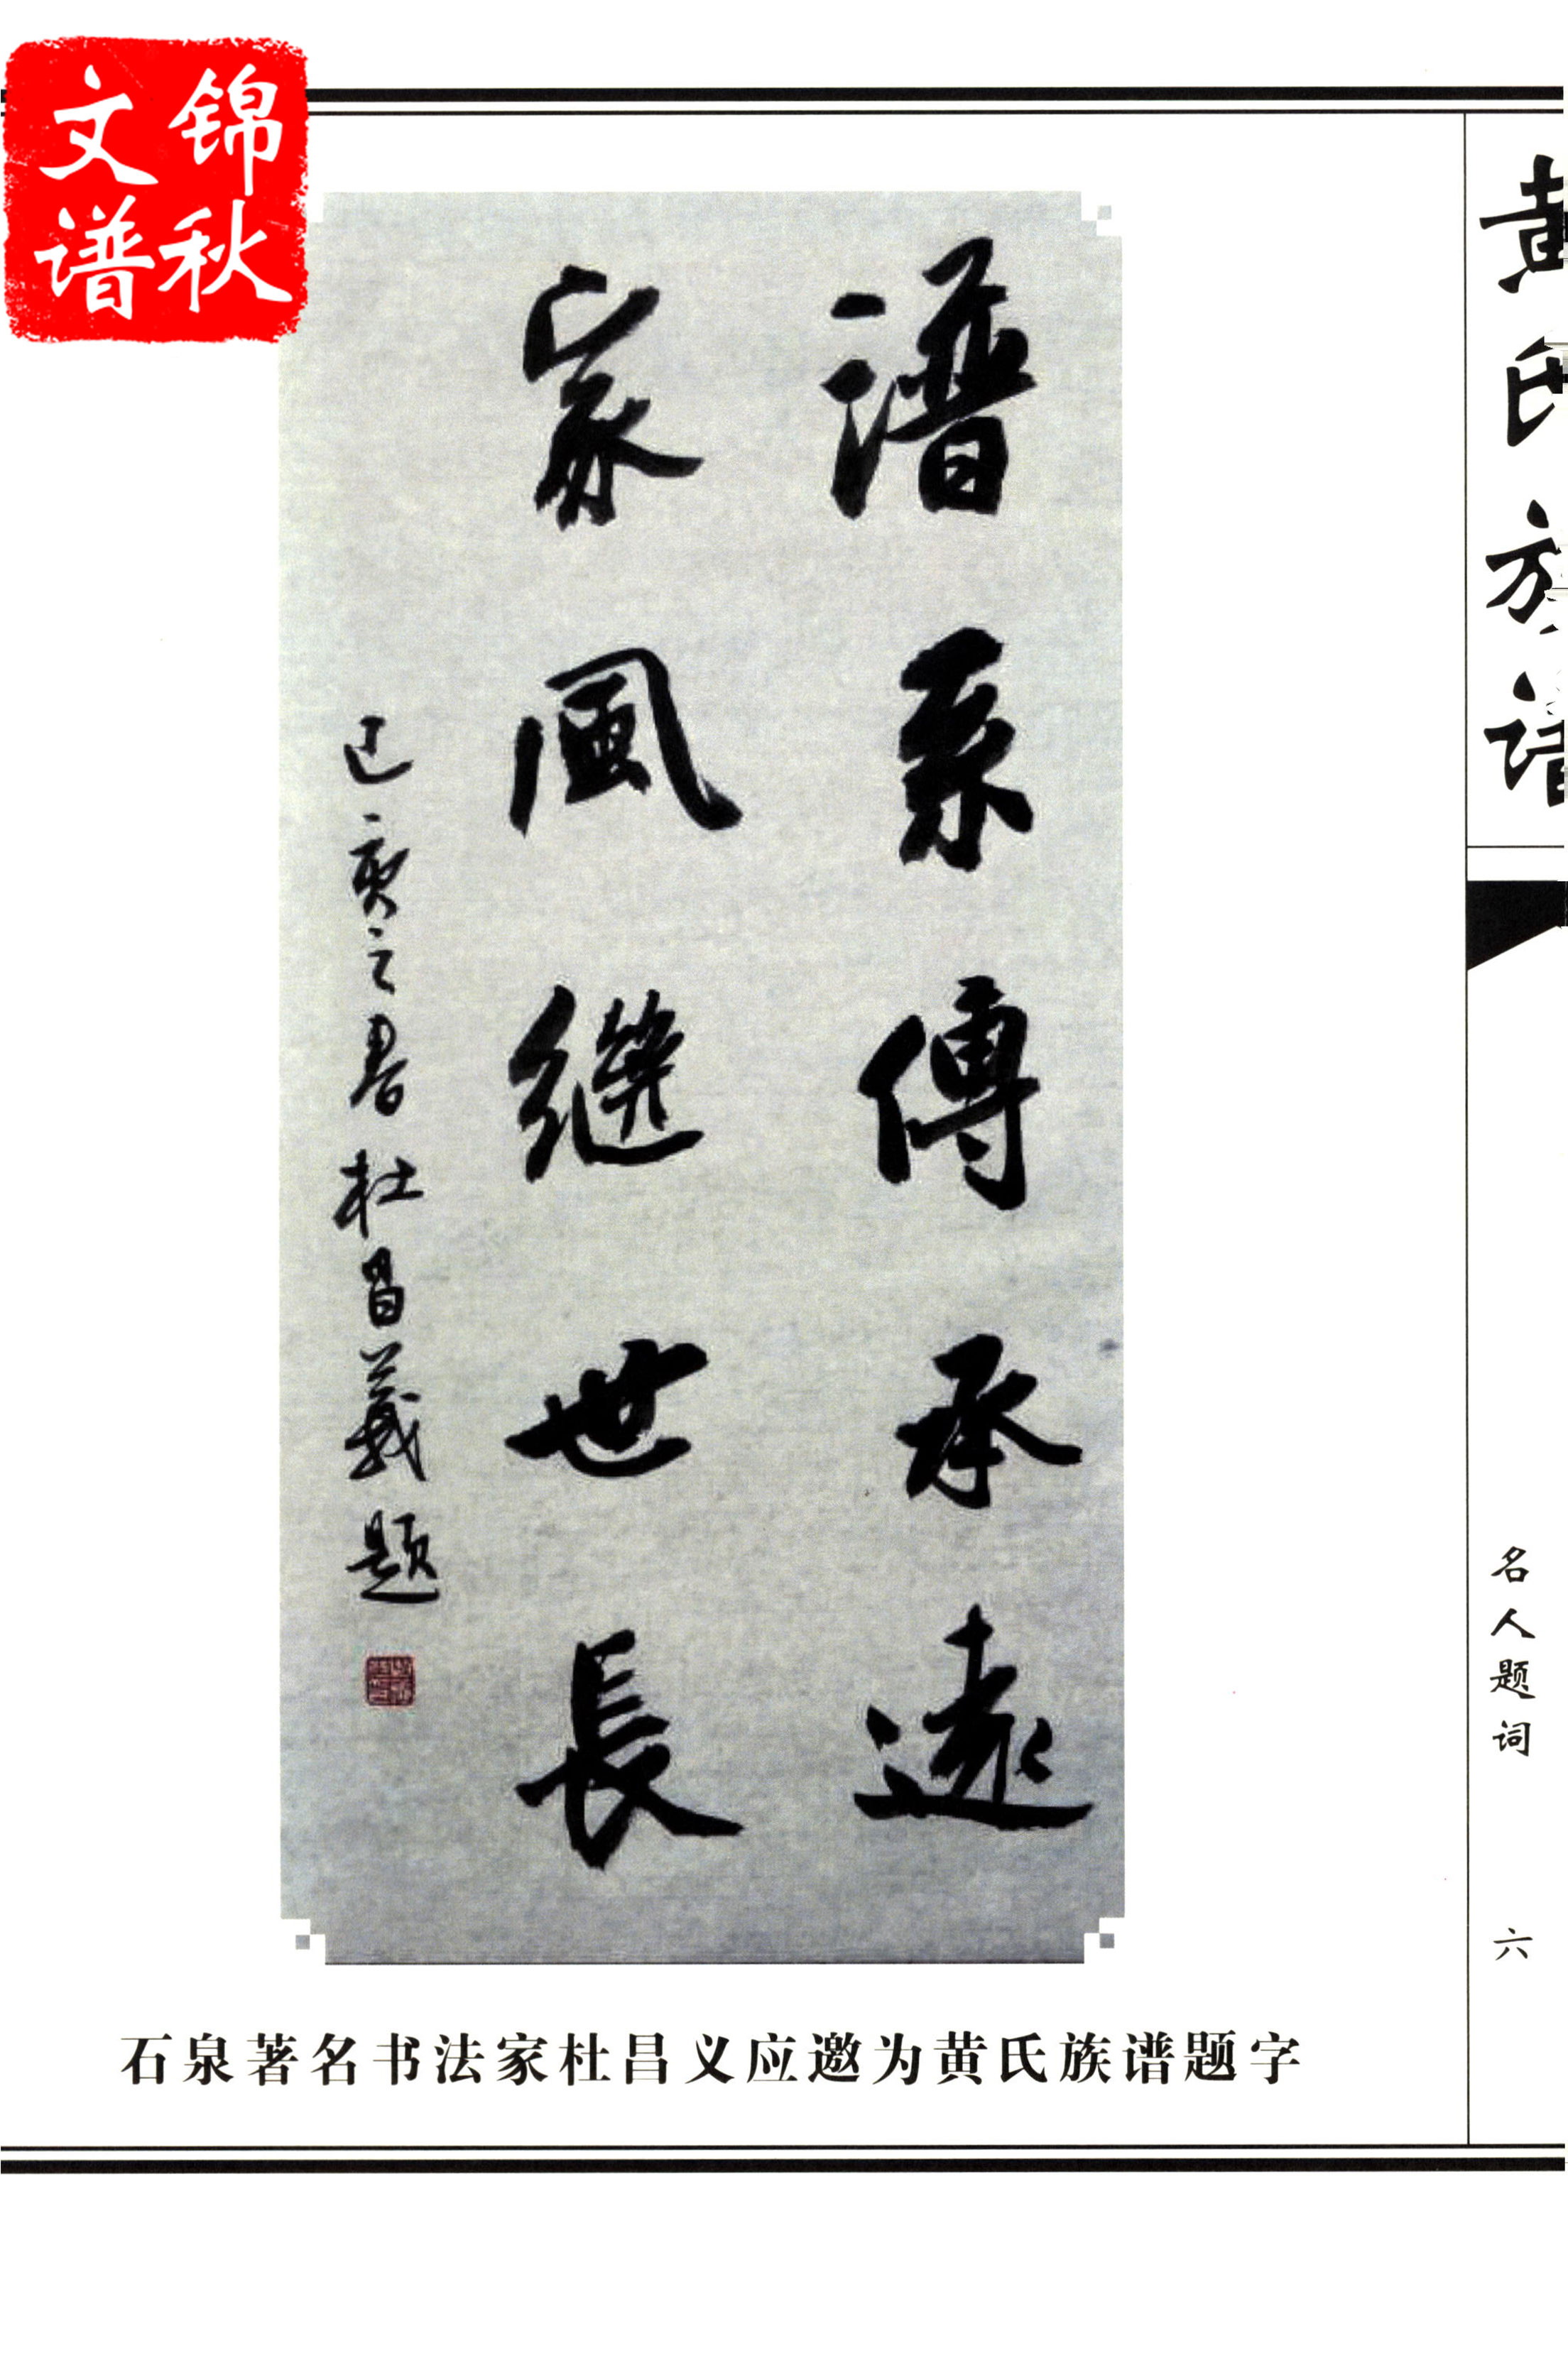 锦秋
文谱
黄氏族谱
名人题词
六
譜系傳承遠
家風繼世長
己亥之春杜昌義题
石泉著名书法家杜昌义应邀为黄氏族谱题字